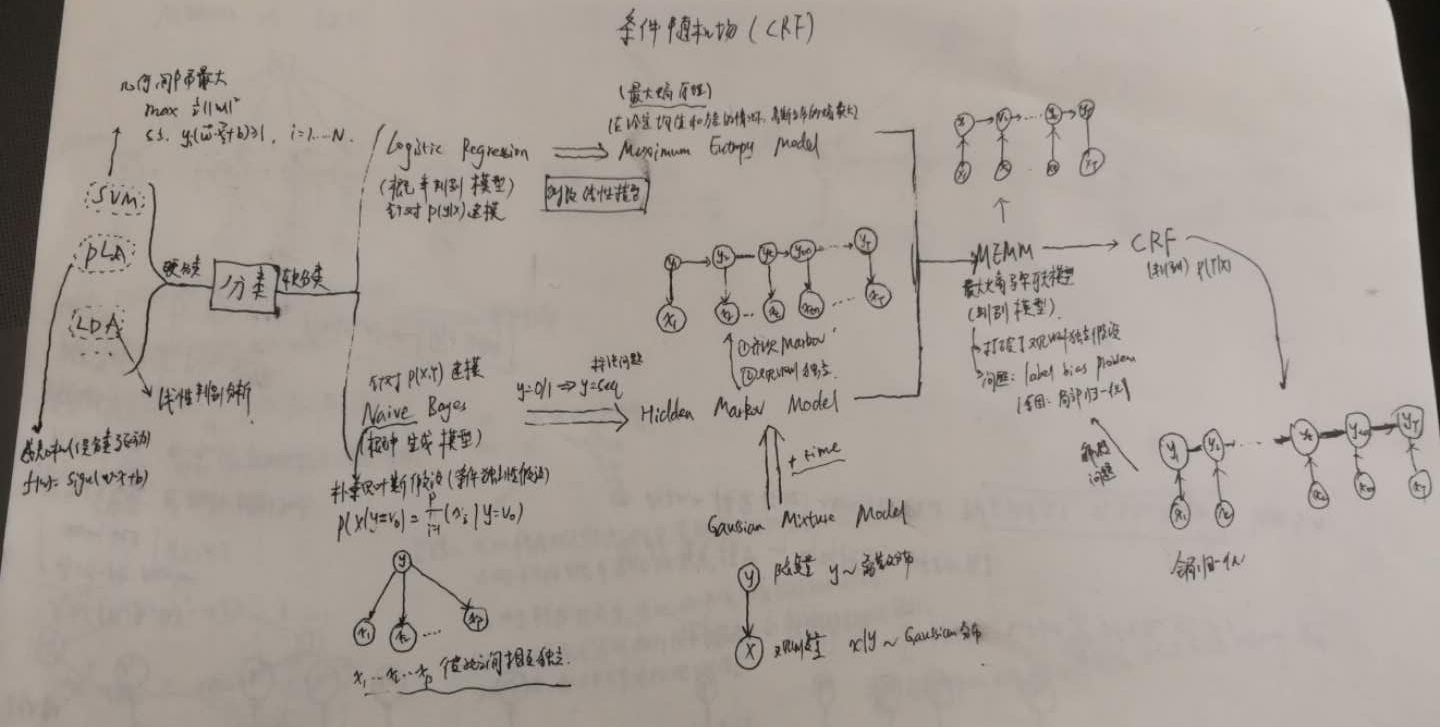 条件随机场 (CRF)
几何间隔最大
max ½||w||²
s.t. yᵢ(w·x+b)≥1, i=1...N.
SVM
PLA
LDA
硬分类
分类
软分类
线性判别分析
感知机(误分类驱动)
f(x)= sign(w·x+b)
Logistic Regression
(概率判别模型)
针对 p(y|x) 建模
(最大熵原理)
(在给定均值和方差的情况下, 高斯分布的熵最大)
Maximum Entropy Model
对数线性模型
针对 P(X,Y) 建模
Naive Bayes
(概率 生成 模型)
朴素贝叶斯假设 (条件独立性假设)
P(X|y=v₀) = ∏ᵢ₌₁ᵖ (xᵢ | y=v₀)
y
x₁ x₂ ... xₚ
x₁ ... x₂ ... xₚ 彼此之间相互独立.
y=0/1 ⇒ y=seq
标注问题
y₁ y₂ yₜ yₜ₊₁ ... y_T
x₁ x₂ ... xₜ xₜ₊₁ ... x_T
①齐次 Markov
②观测独立
Hidden Markov Model
+ time
Gaussian Mixture Model
y 隐变量 y ~ 离散分布
x 观测变量 x|y ~ Gaussian 分布
MEMM
最大熵马尔可夫模型
(判别模型).
打破了观测独立假设
问题: label bias problem
(原因: 局部归一化)
CRF
(判别) P(Y|X)
解决
问题
y₁ y₂ ... yₜ yₜ₊₁ y_T
x₁ x₂ xₜ xₜ₊₁ x_T
全局归一化